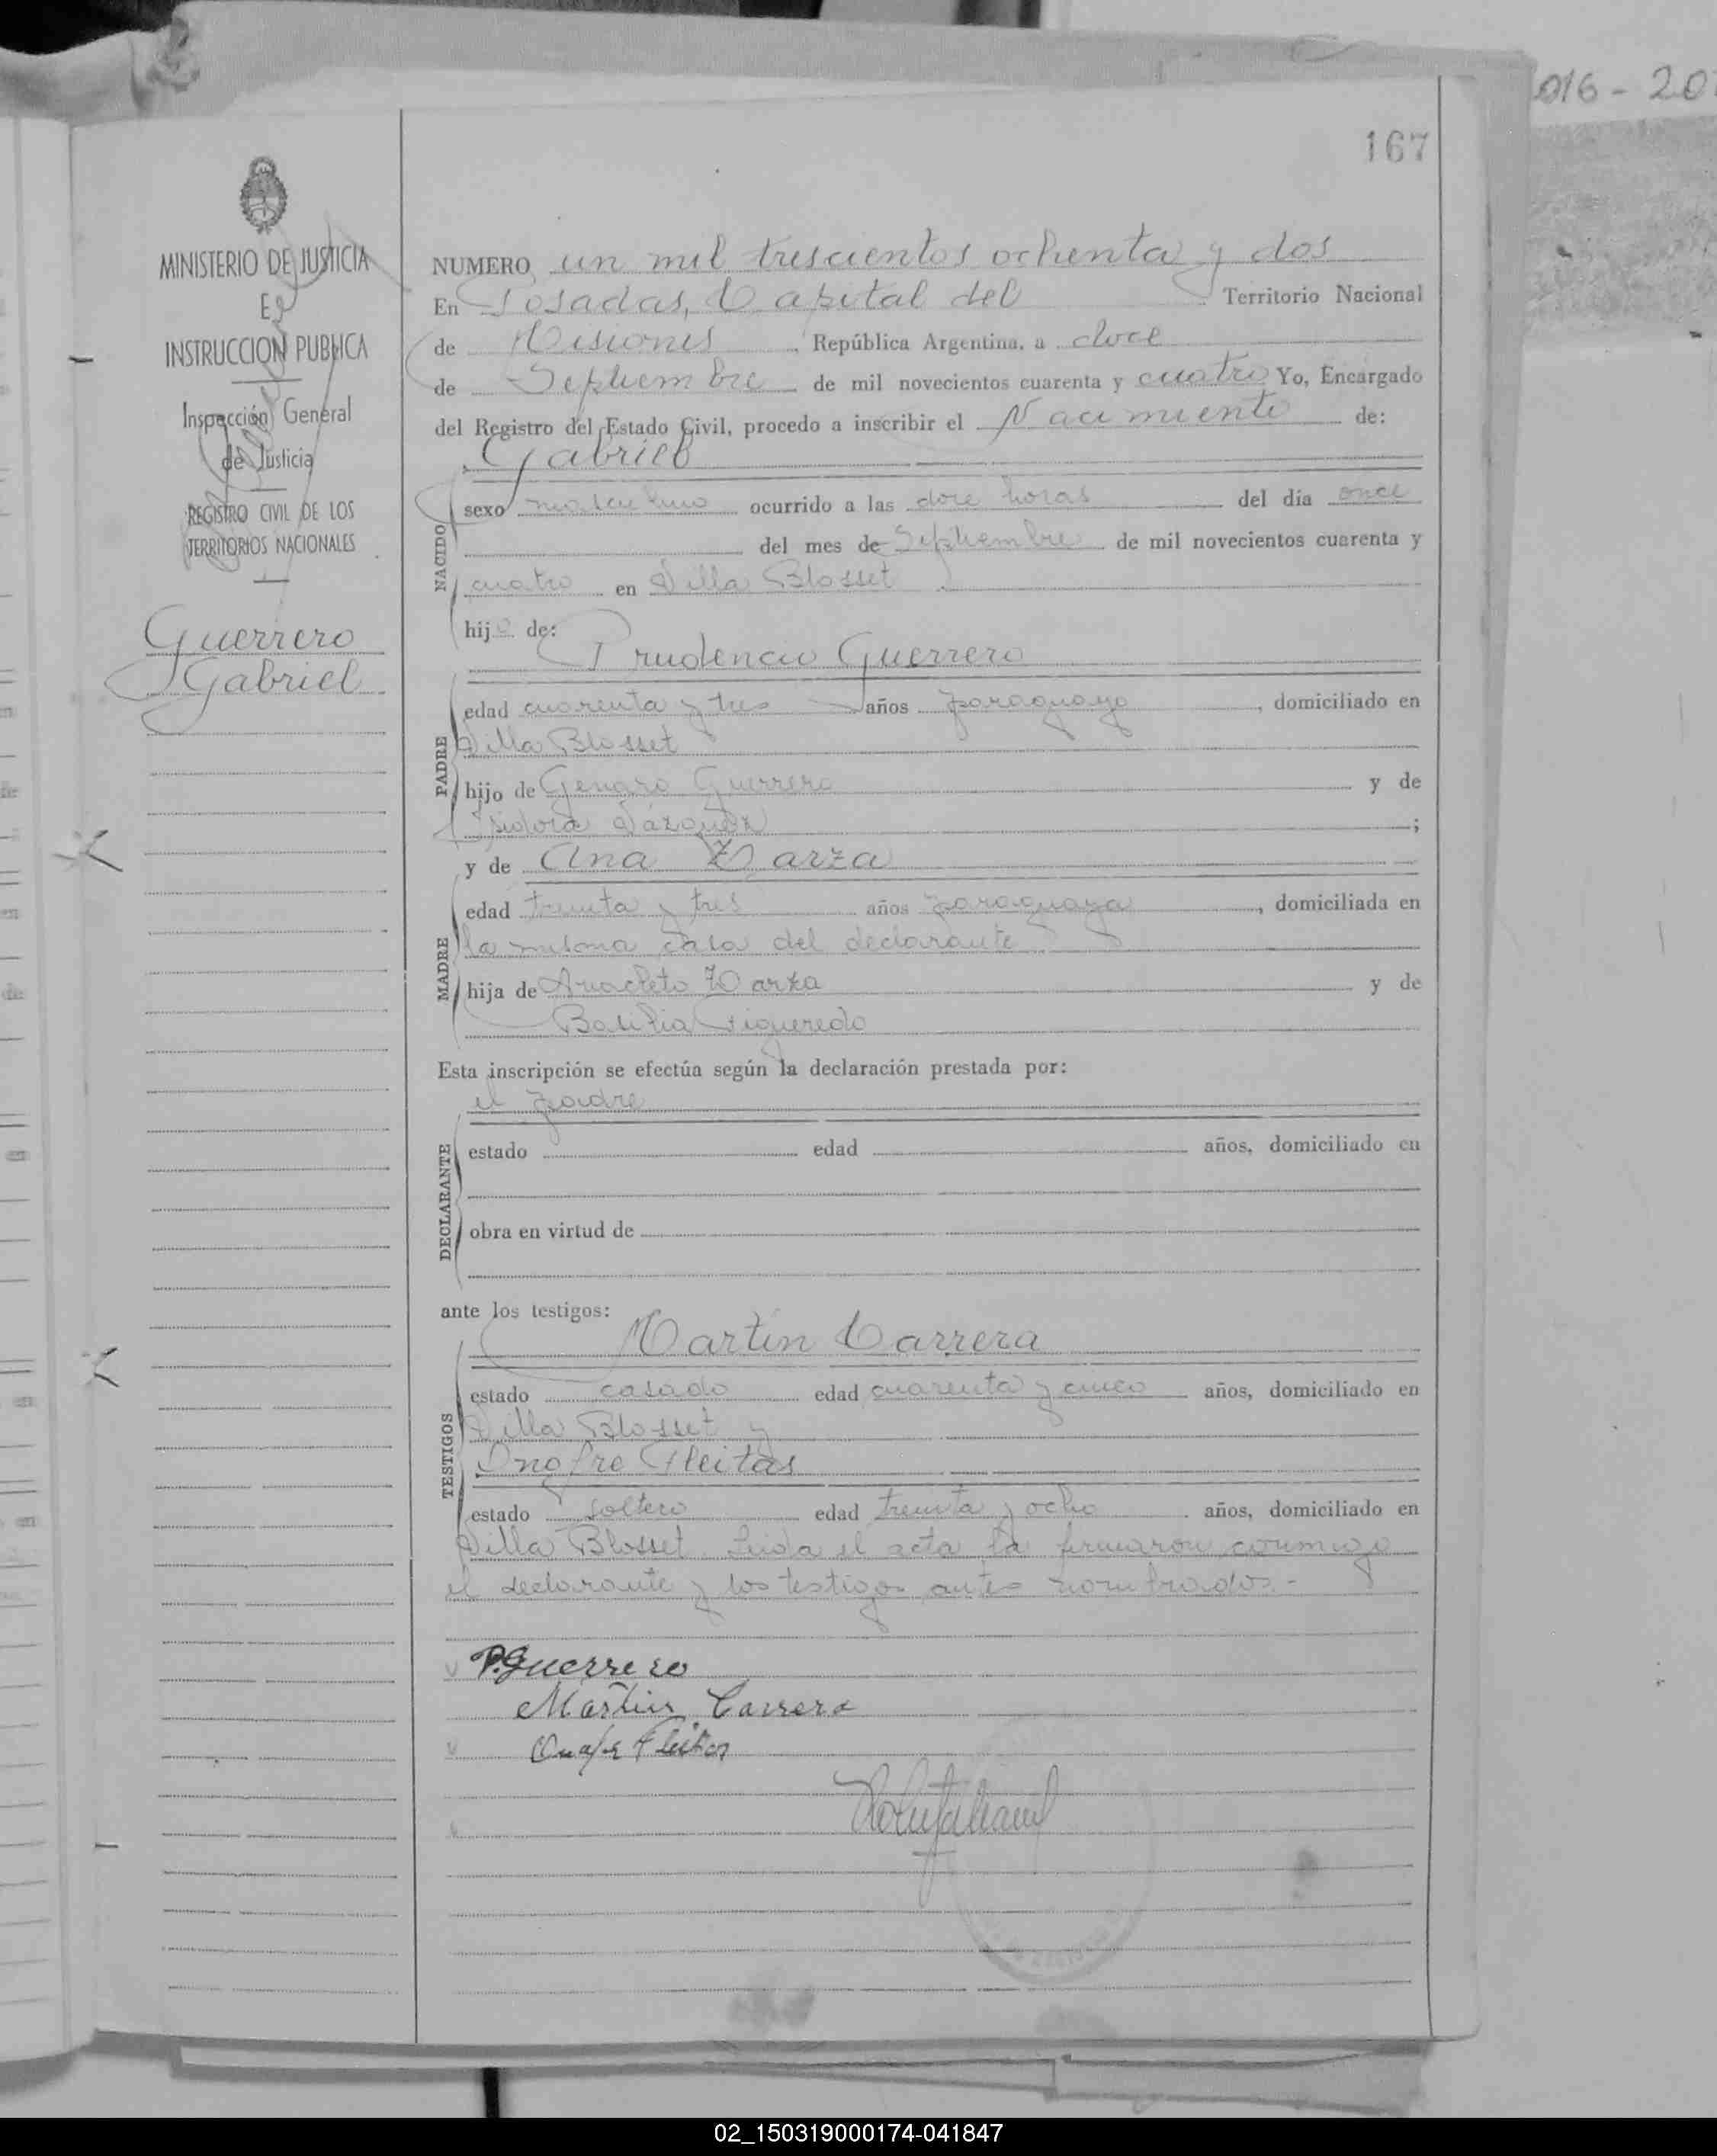 016 - 20
167
MINISTERIO DE JUSTICIA
E
INSTRUCCION PUBLICA
Inspección General
de Justicia
REGISTRO CIVIL DE LOS
TERRITORIOS NACIONALES
Guerrero
Gabriel
NUMERO un mil trescientos ochenta y dos
En Posadas, Capital del Territorio Nacional
de Misiones, República Argentina, a doce
de Septiembre de mil novecientos cuarenta y cuatro Yo, Encargado
del Registro del Estado Civil, procedo a inscribir el Nacimiento de:
Gabriel
NACIDO
sexo masculino ocurrido a las doce horas del día once
del mes de Septiembre de mil novecientos cuarenta y
cuatro en Villa Blosset
hijo de:
Prudencio Guerrero
PADRE
edad cuarenta y tres años paraguayo, domiciliado en
Villa Blosset
hijo de Genaro Guerrero y de
Isidora Vázquez;
y de Ana Zarza
MADRE
edad treinta y tres años paraguaya, domiciliada en
la misma casa del declarante
hija de Anacleto Zarza y de
Figueredo
Esta inscripción se efectúa según la declaración prestada por:
el padre
DECLARANTE
estado edad años, domiciliado en
obra en virtud de
ante los testigos:
Martín Carrera
TESTIGOS
estado casado edad cuarenta y cinco años, domiciliado en
Villa Blosset y
Onofre Fleitas
estado soltero edad treinta y ocho años, domiciliado en
Villa Blosset. Leída el acta la firmaron conmigo
el declarante y los testigos antes nombrados.-
P. Guerrero
Martin Carrera
Onofre Fleitas
02_150319000174-041847